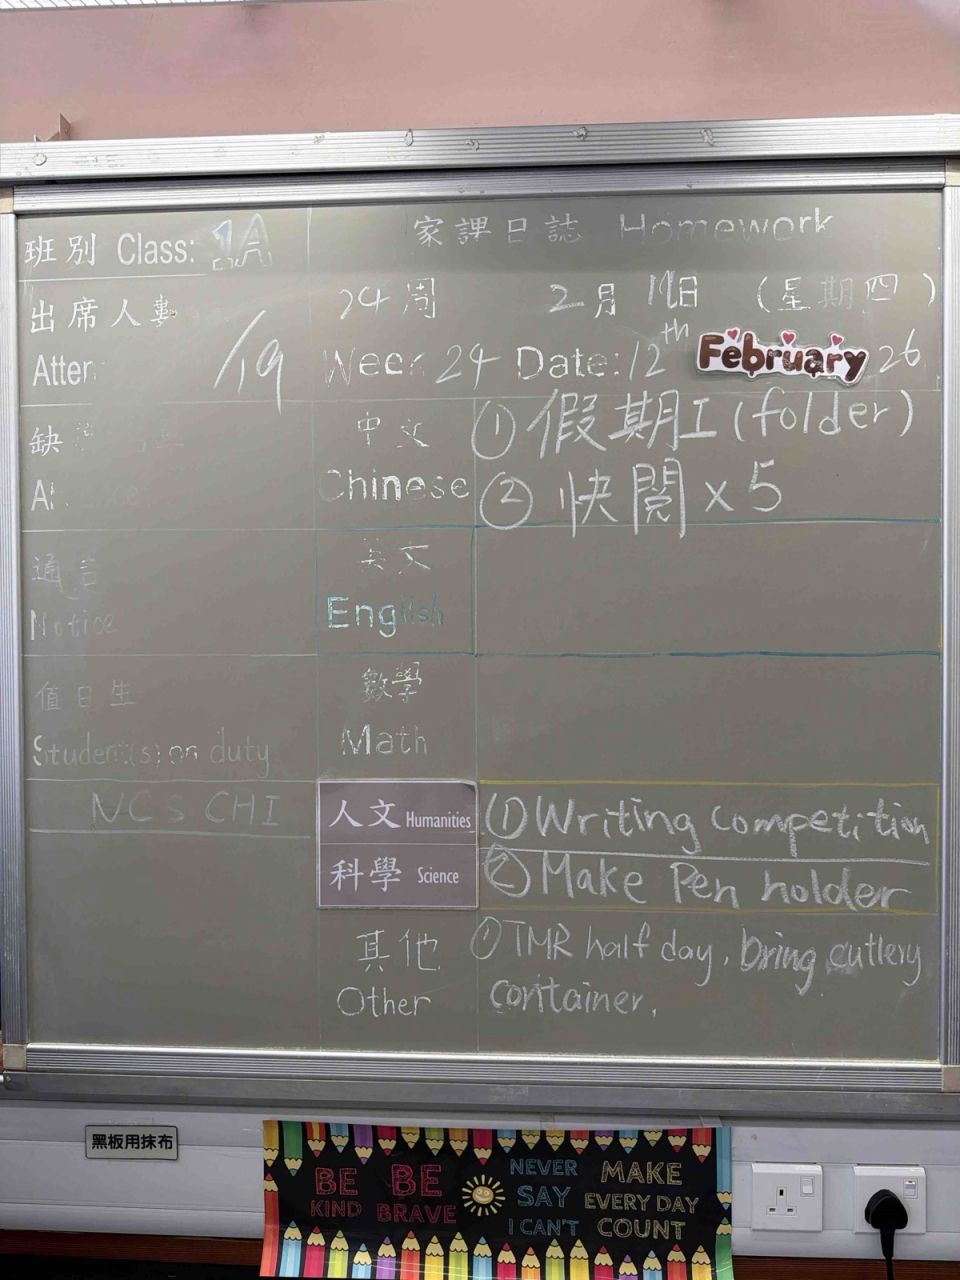 班別 Class: 1A
家課日誌 Homework
出席人數
24周 2月12日 (星期四)
Atten
/19
Week 24 Date: 12th February 26
缺
中文
Chinese
① 假期工(folder)
② 快閱 x 5
通告
Notice
英文
English
值日生
Student(s) on duty
數學
Math
NCS CHI
人文 Humanities
科學 Science
① Writing competition
② Make Pen holder
其他
Other
① TMR half day, bring cutlery
container.
黑板用抹布
BE KIND
BE BRAVE
NEVER SAY I CAN'T
MAKE EVERY DAY COUNT